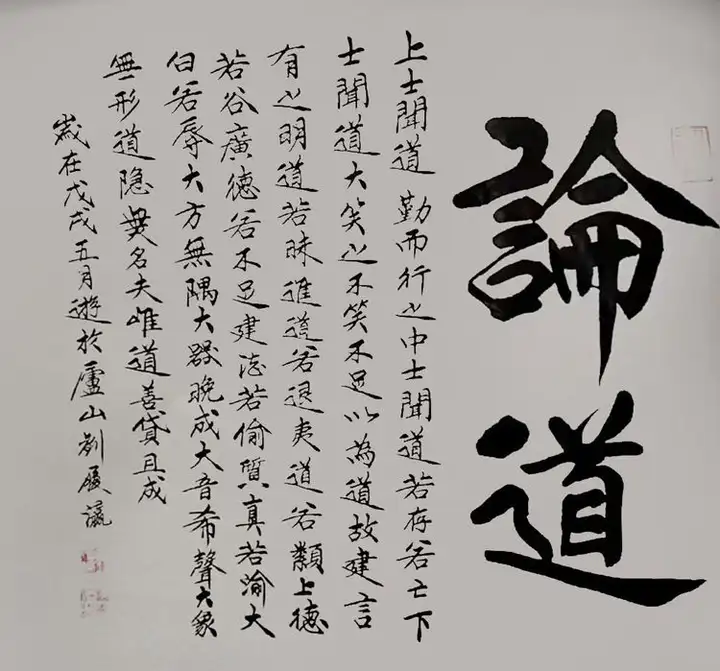 論道
上士聞道勤而行之中士聞道若存若亡下
士聞道大笑之不笑不足以為道故建言
有之明道若昧進道若退夷道若纇上德
若谷廣德若不足建德若偷質真若渝大
白若辱大方無隅大器晚成大音希聲大象
無形道隐無名夫唯道善貸且成
歲在戊戌五月遊於廬山